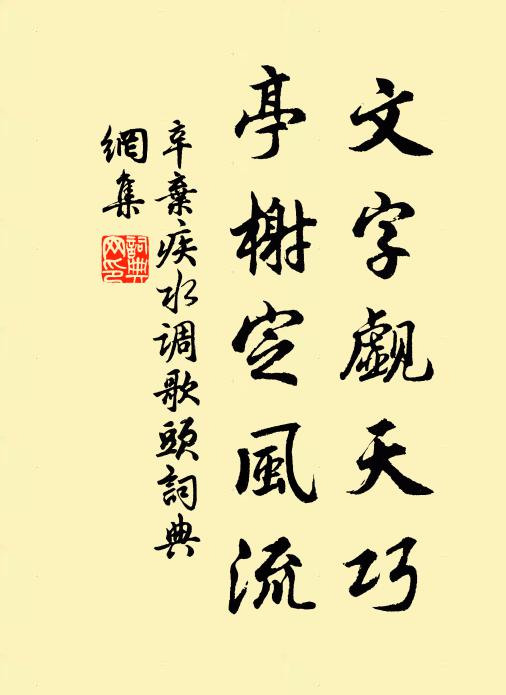 文字覷天巧
亭榭定風流
辛棄疾水调歌頭詞典
網集
詞典
网印